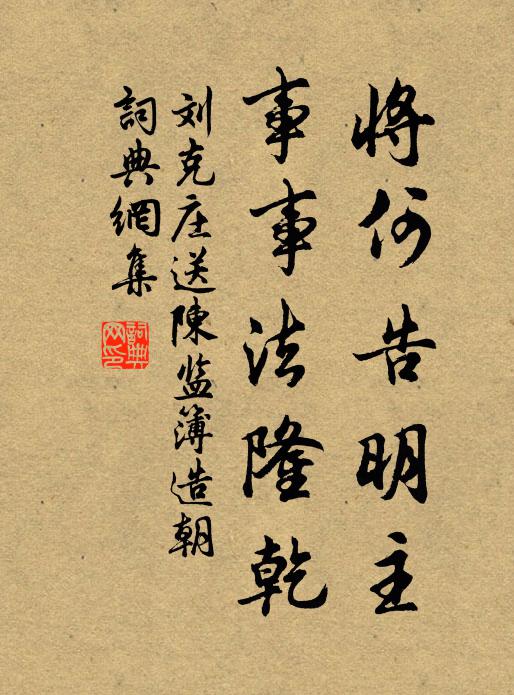 將何告明主
事事法隆乾
刘克庄送陳监簿造朝
詞典網集
詞典网印